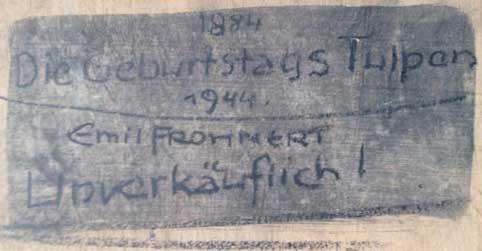 1884
Die Geburtstags Tulpen
1944.
Emil FROMMERT
Unverkäuflich!